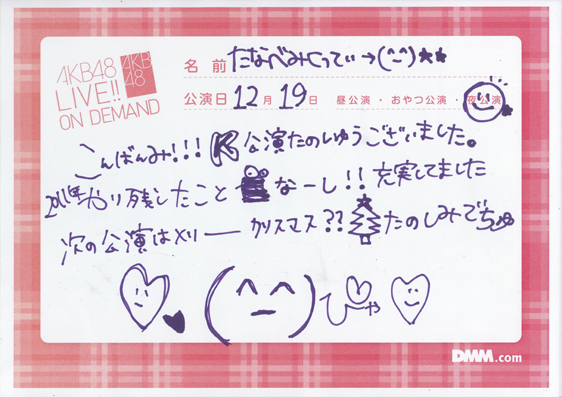 AKB48
LIVE!!
ON DEMAND
AKB
48
名前 たなべみにってぃ→(^-^)★★
公演日 12月19日 昼公演・おやつ公演・夜公演
こんばんみ!!! K公演たのしゅうございました。
2011年やり残したこと なーし!! 充実してました
次の公演はメリー クリスマス?? たのしみでち♪
(^-^)ぴゃ
DMM.com